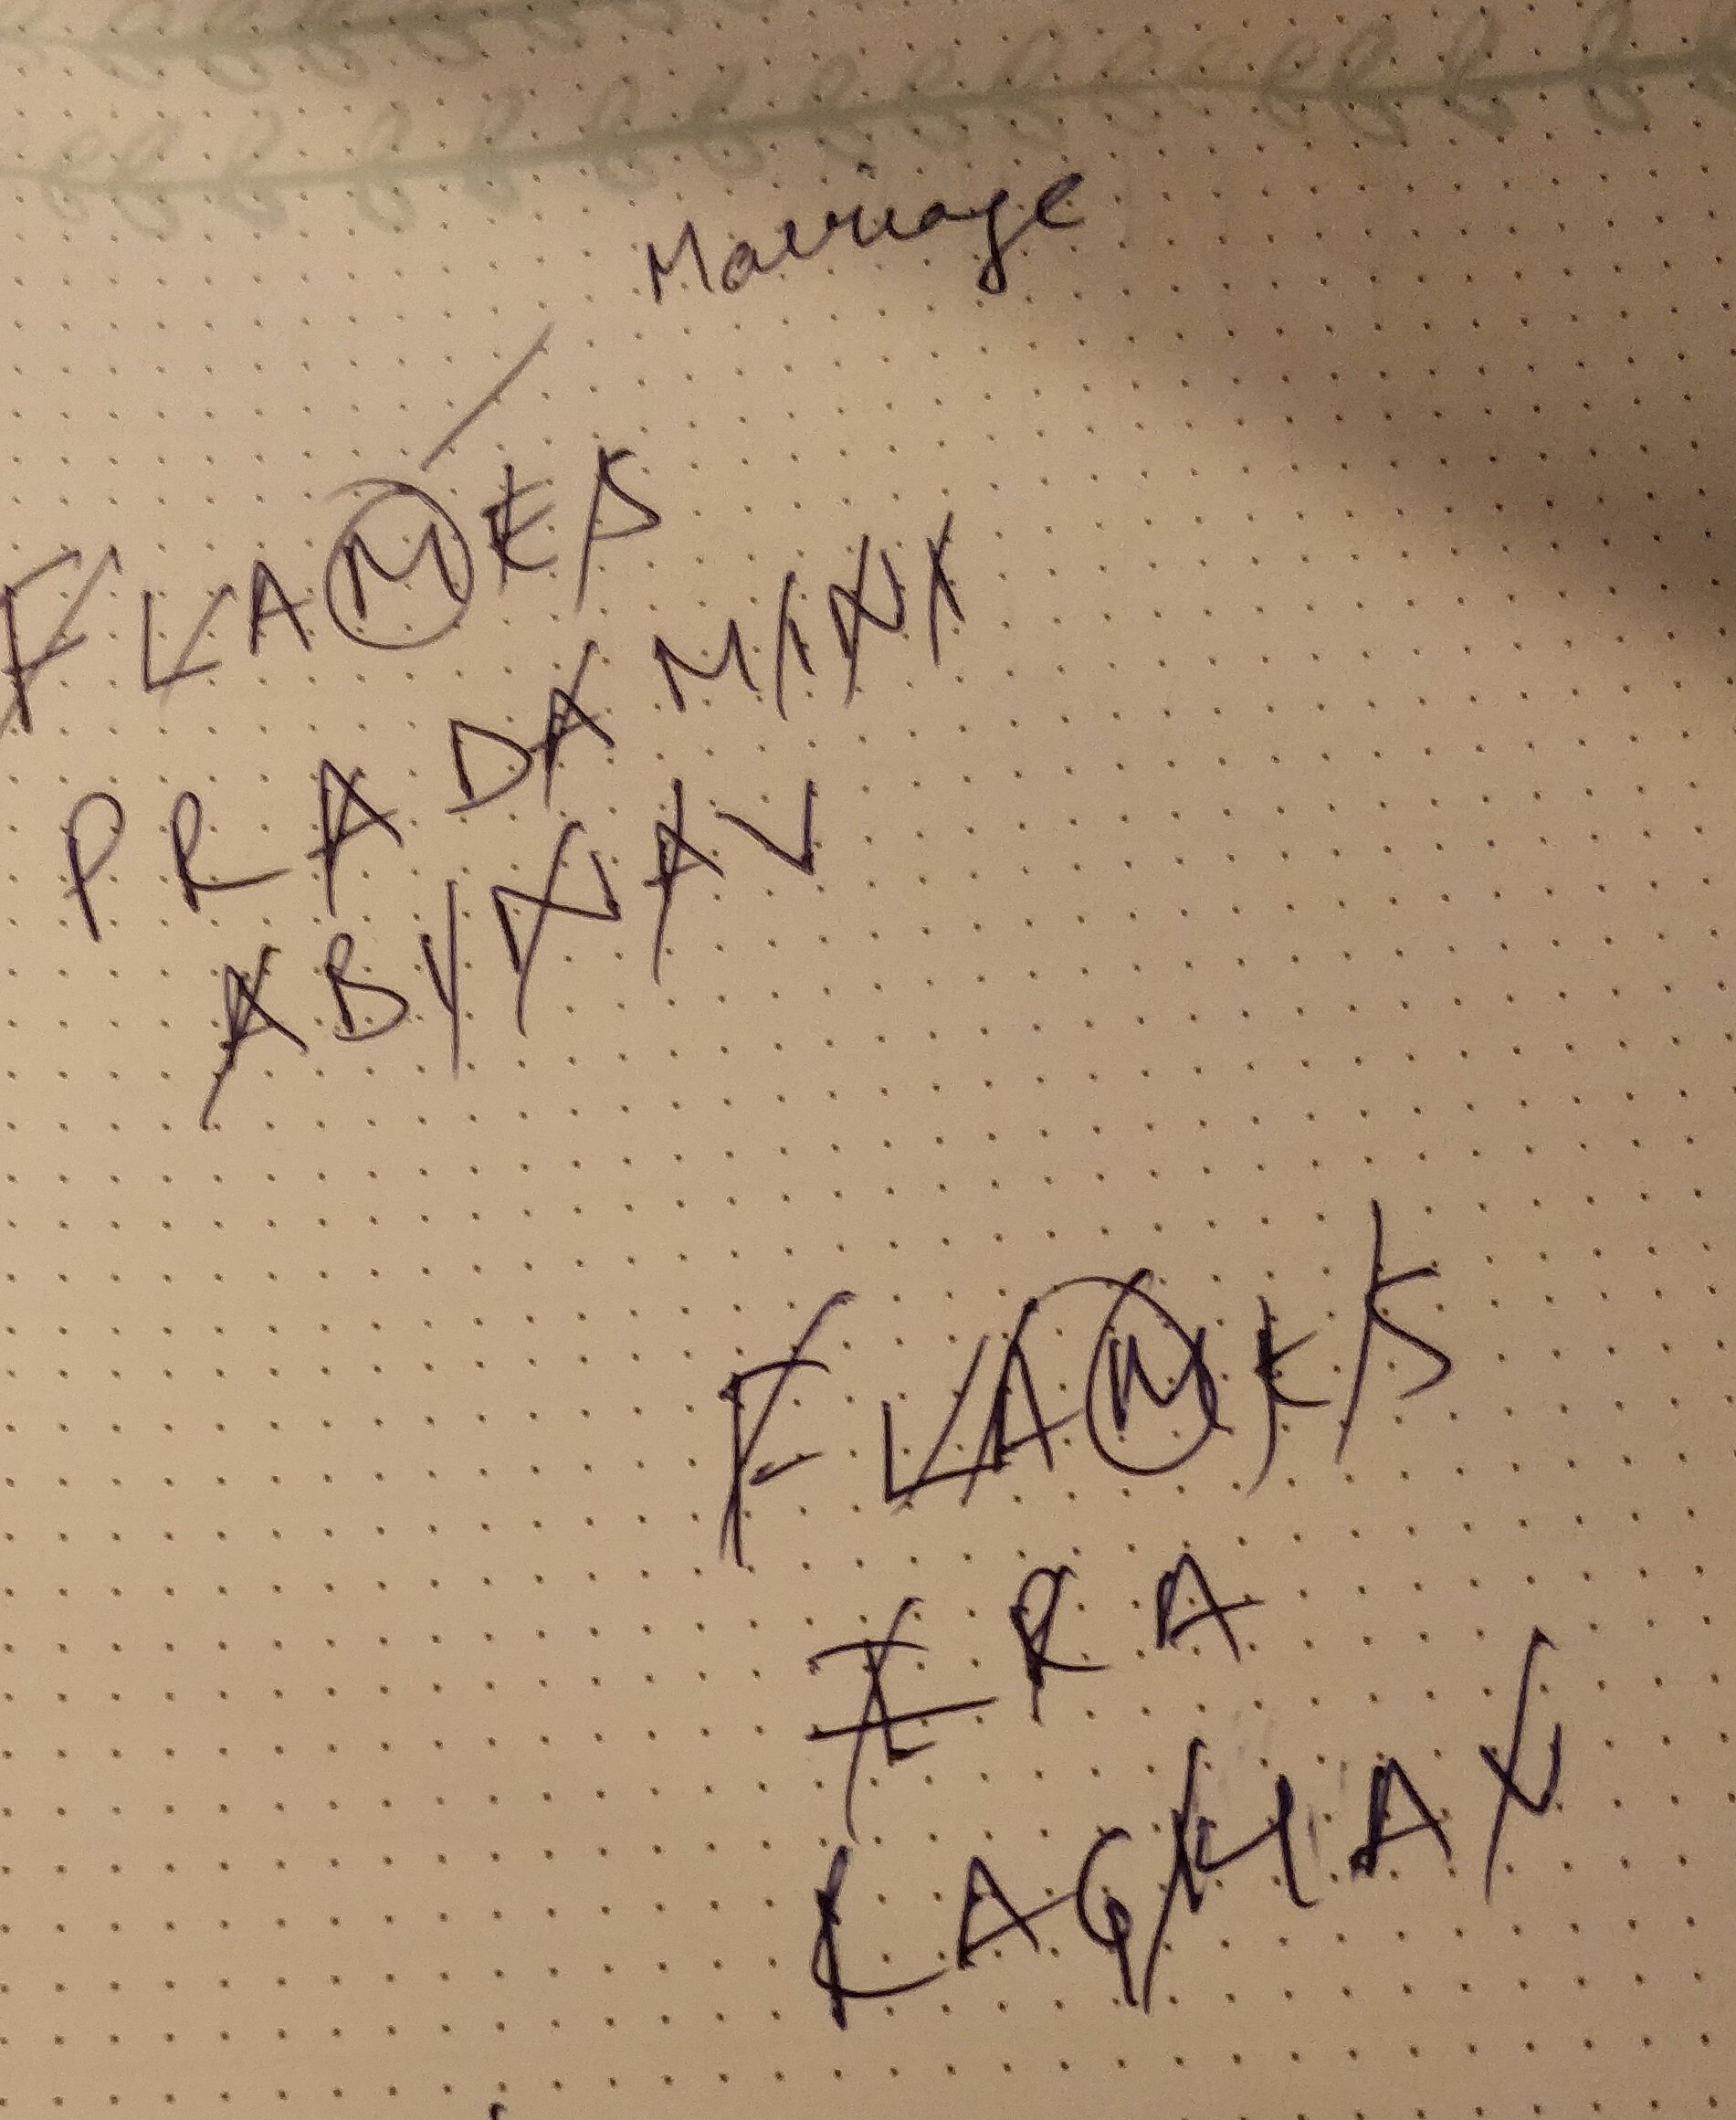 Marriage
FLAMES
PRADAMINI
ABINAV
FLAMES
IRA
RAGHAV